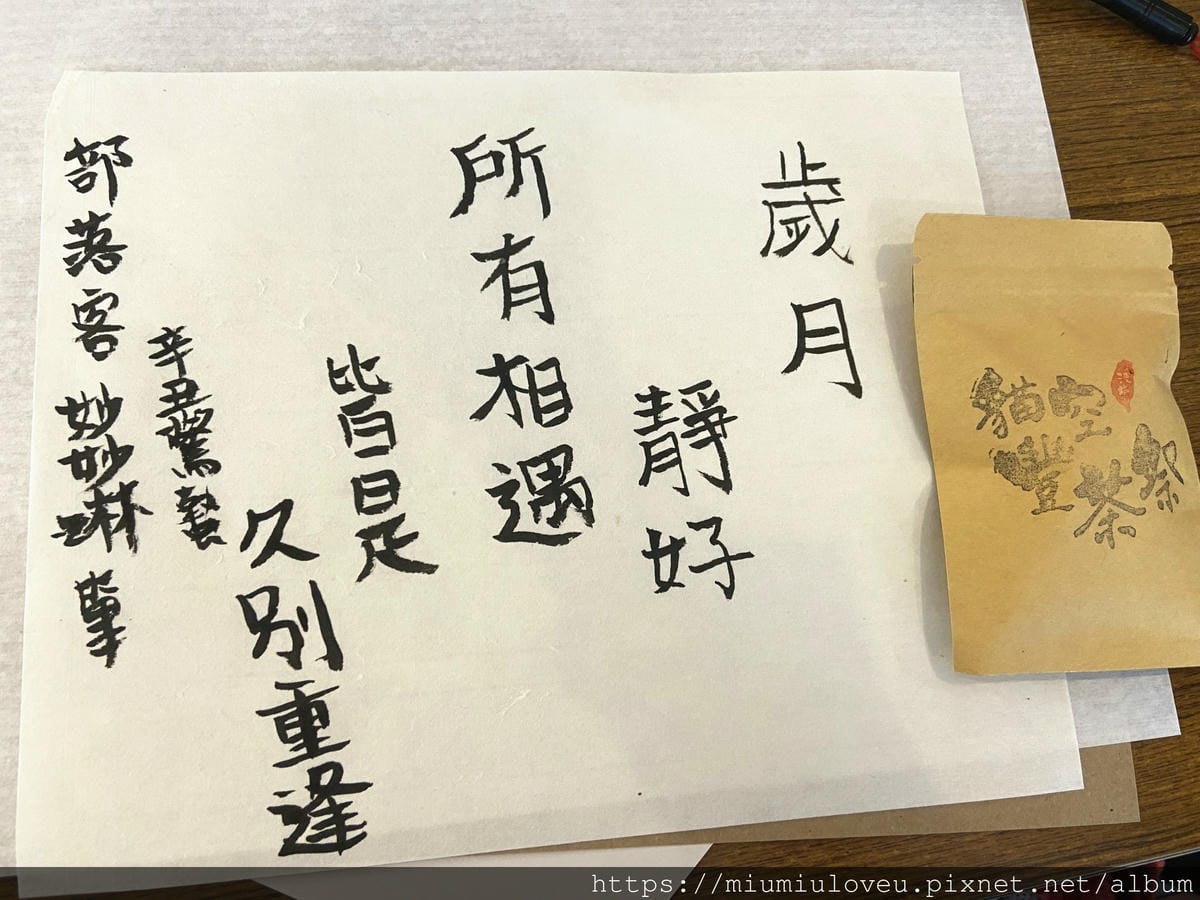 歲月
靜好
所有相遇
皆是
久別重逢
辛丑驚蟄
部落客 妙妙琳 筆
貓空
豐茶祭
https://miumiuloveu.pixnet.net/album